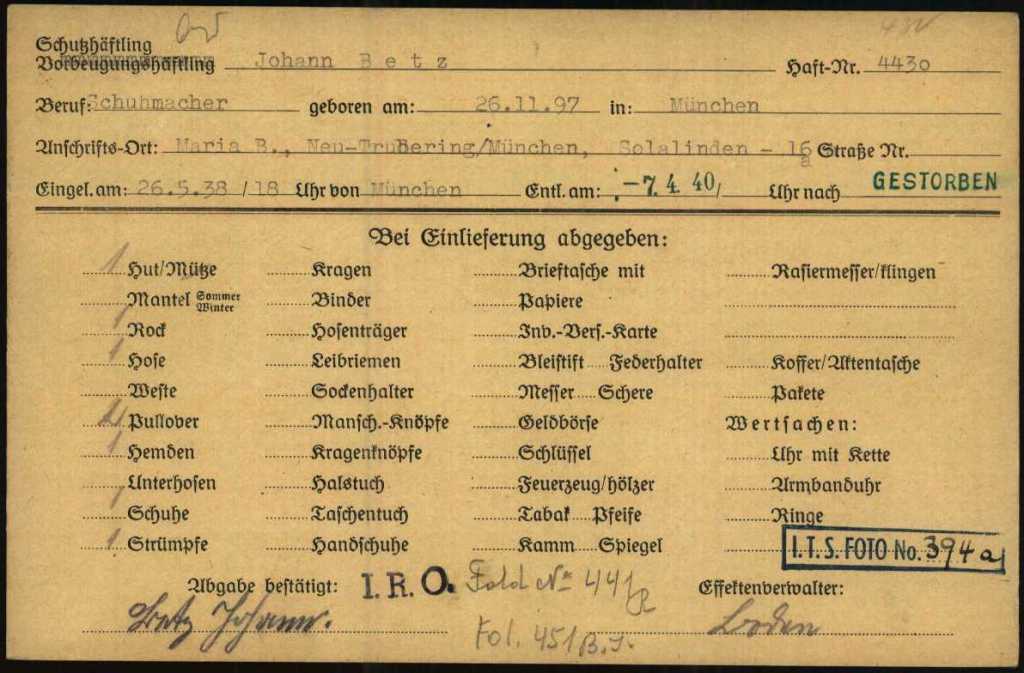 Schutzhäftling
Vorbeugungshäftling Johann Betz Haft-Nr. 4430
Beruf: Schuhmacher geboren am: 26.11.97 in: München
Anschrifts-Ort: Maria B., Neu-Trudering/München, Solalinden - 16a Straße Nr.
Eingel. am: 26.5.38 /18 Uhr von München Entl. am: -7. 4. 40/ Uhr nach GESTORBEN
Bei Einlieferung abgegeben:
1 Hut/Mütze Kragen Brieftasche mit Rasiermesser/klingen
Mantel Sommer Winter Binder Papiere
1 Rock Hosenträger Inv.-Vers.-Karte
1 Hose Leibriemen Bleistift Federhalter Koffer/Aktentasche
Weste Sockenhalter Messer Schere Pakete
Pullover Mansch.-Knöpfe Geldbörse Wertsachen:
1 Hemden Kragenknöpfe Schlüssel Uhr mit Kette
Unterhosen Halstuch Feuerzeug/hölzer Armbanduhr
1 Schuhe Taschentuch Tabak Pfeife Ringe
1 Strümpfe Handschuhe Kamm Spiegel I.T.S. FOTO No. 394a
Abgabe bestätigt: I.R.O. Fold No 441 Effektenverwalter:
Betz Johann. Fol. 451 B.J. Boden